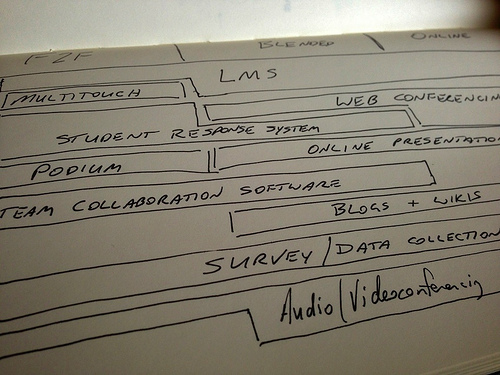 F2F BLENDED ONLINE
LMS
MULTITOUCH WEB CONFERENCIN
STUDENT RESPONSE SYSTEM
PODIUM ONLINE PRESENTATIO
TEAM COLLABORATION SOFTWARE
BLOGS + WIKIS
SURVEY / DATA COLLECTION
Audio / Videoconferencing